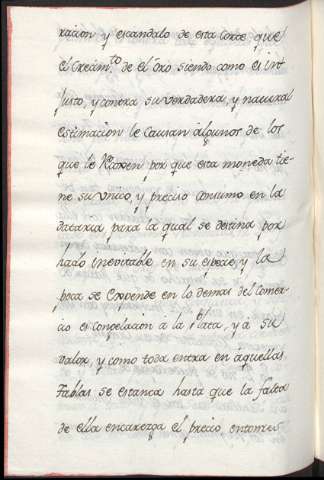 racion y escandalo de esta Corte que
el Cream.to de el oro siendo como es int
Justo, y contra su verdadera, y natural
estimacion le Causan algunos de los
que le por que esta moneda tie
ne su Unico, y preciso Consumo en la
dataria, para la qual se destina por
hado inevitable en su especie, y la
poca se Expende en lo demas del Comer
cio es Conpelacion à la Plata, y à su
valor, y como toda entra en aquellas
Tablas se estanca hasta que la falta
de ella encarezca el precio, entonces